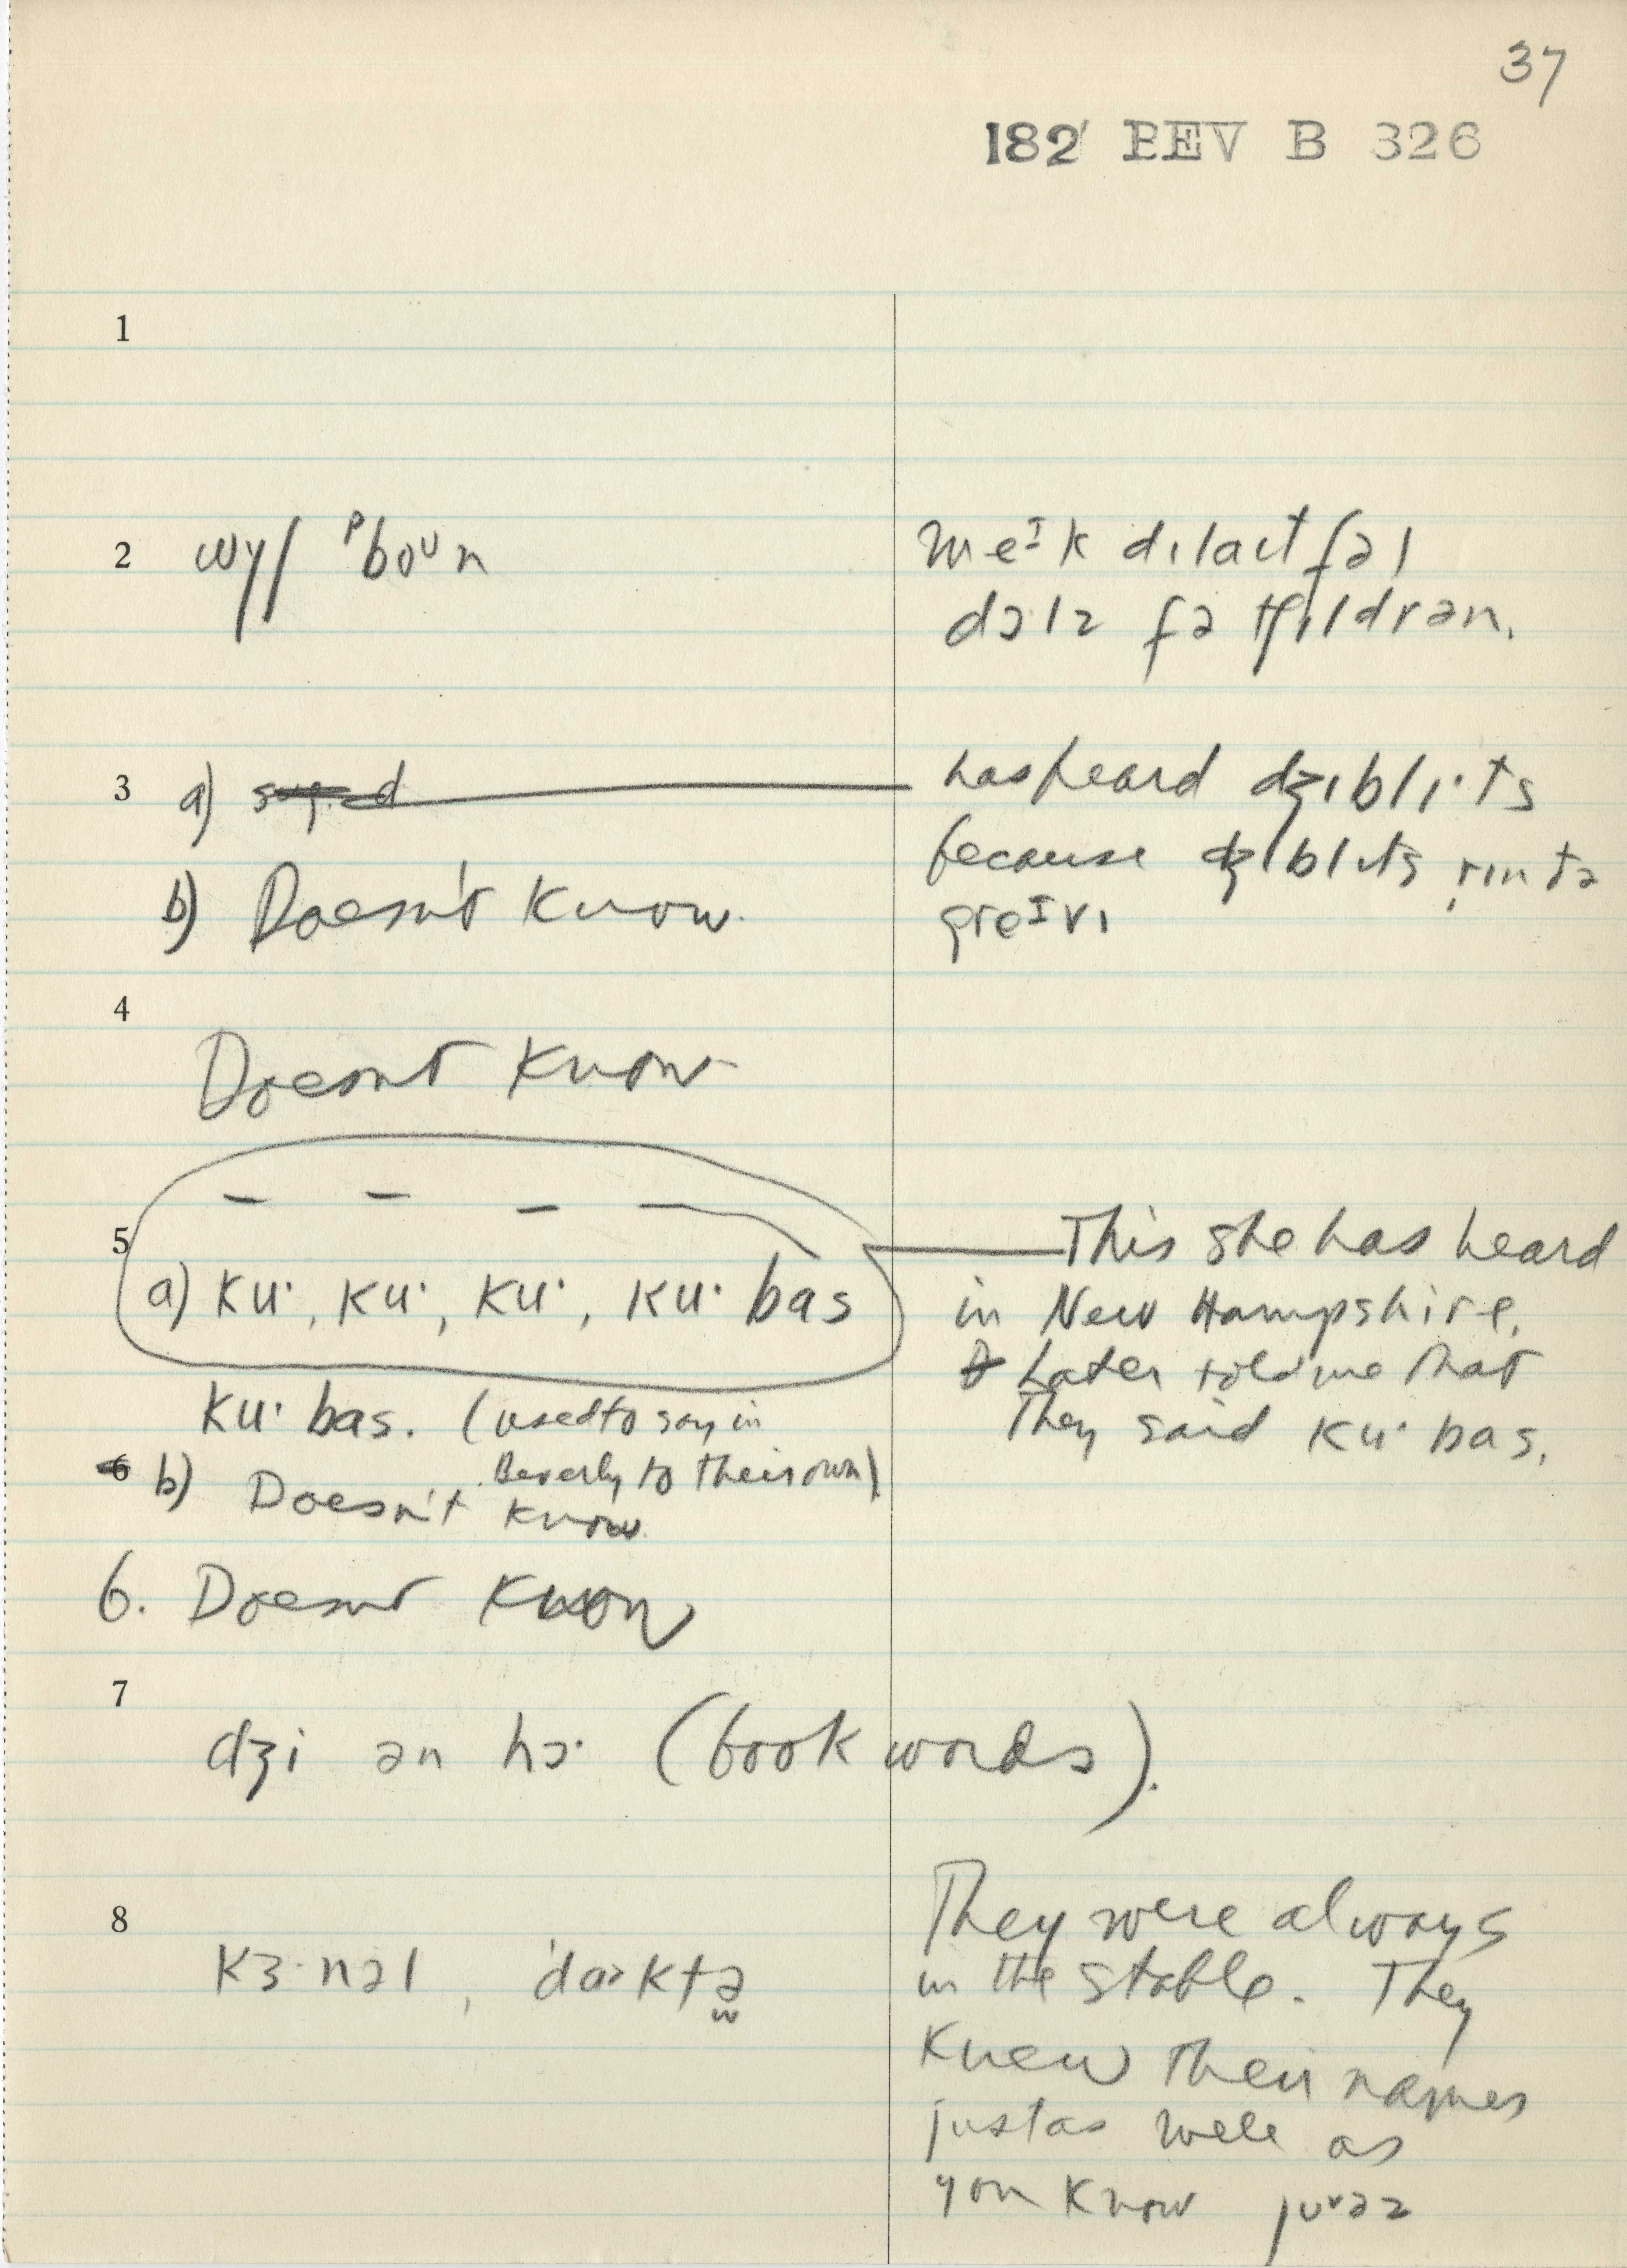 37
182 BEV B 326
1
2 wɣʃ ᵖboᴜn
meɪk dɪlaɪtfəl
dɔlz fə tʃɪldrən.
3 a)
has heard dʒɪblɪ·ts
because dʒɪblɪts rɪntə
greɪvɪ
b) Doesn't know.
4
Doesnt know
5
a) ku·, ku·, ku·, ku· bas
This she has heard
in New Hampshire.
Later told me that
They said ku· bas.
ku· bas. (used to say in
Beverly to their own)
b) Doesn't know.
6. Doesnt know
7
dʒi ən hɔ· (book words).
8
kɜ·nəl, 'daktə
They were always
in the stable. They
knew their names
just as well as
you know juᵛəz